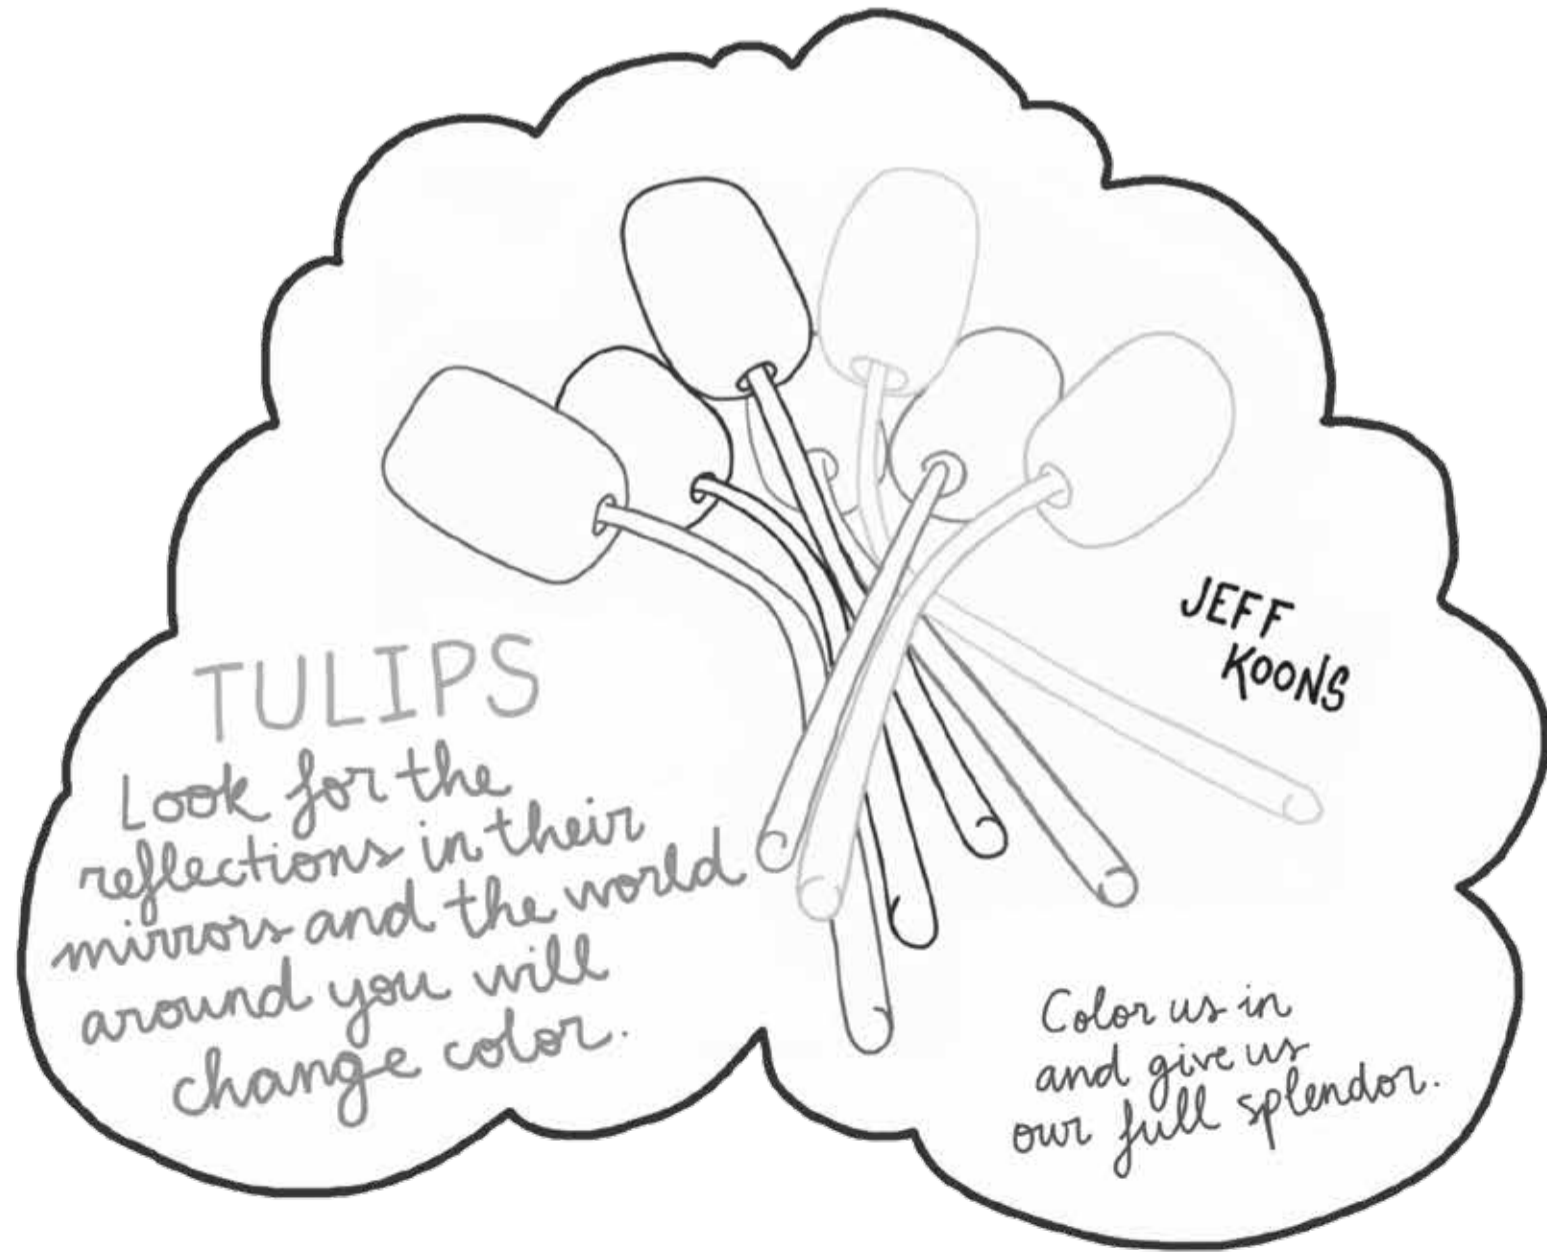 TULIPS
Look for the
reflections in their
mirrors and the world
around you will
change color.
JEFF
KOONS
Color us in
and give us
our full splendor.